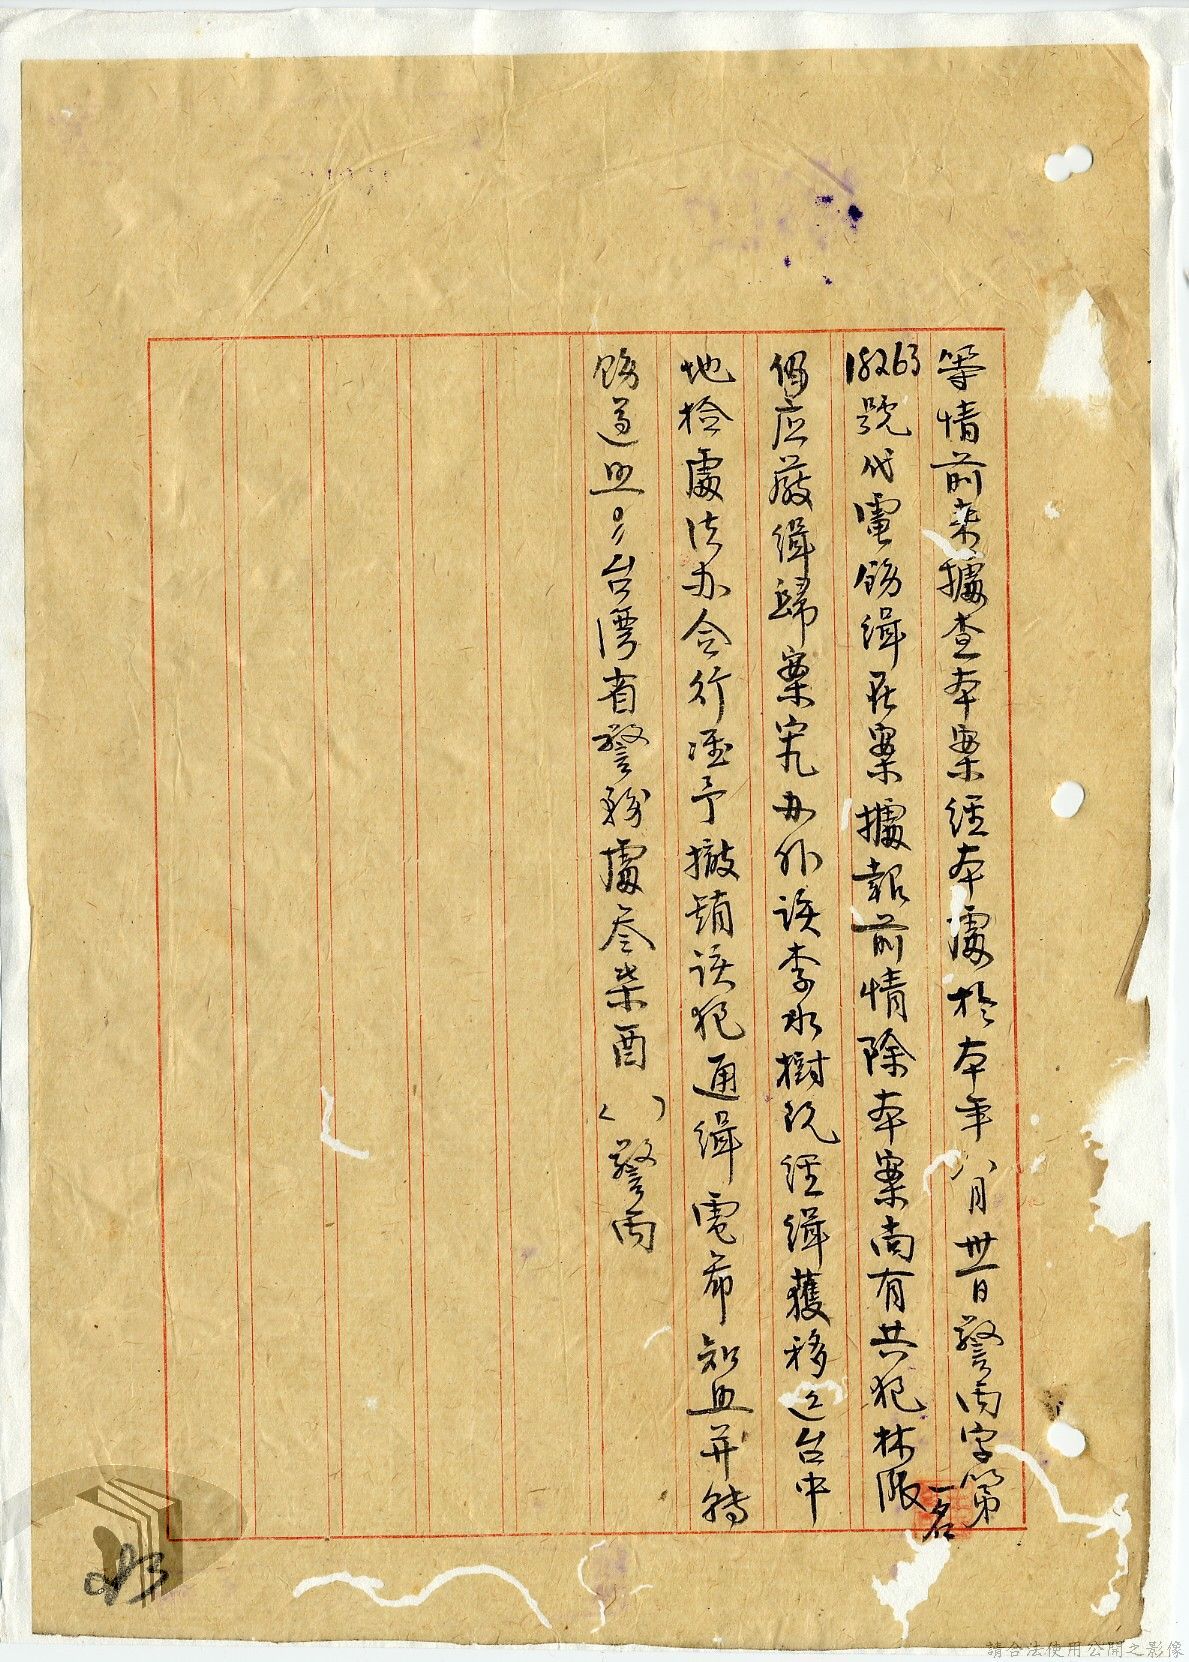 等情前來據查本案經本處於本年八月卅一日警丙字第
18263號代電飭緝在案據報前情除本案尚有共犯林 一名
仍应嚴緝歸案究办外該李水樹既經緝獲移送台中
地检處法办合行逕予撤銷該犯通緝電希知照并轉
飭遵照台灣省警務處叁柒酉( )警丙
請合法使用公開之影像